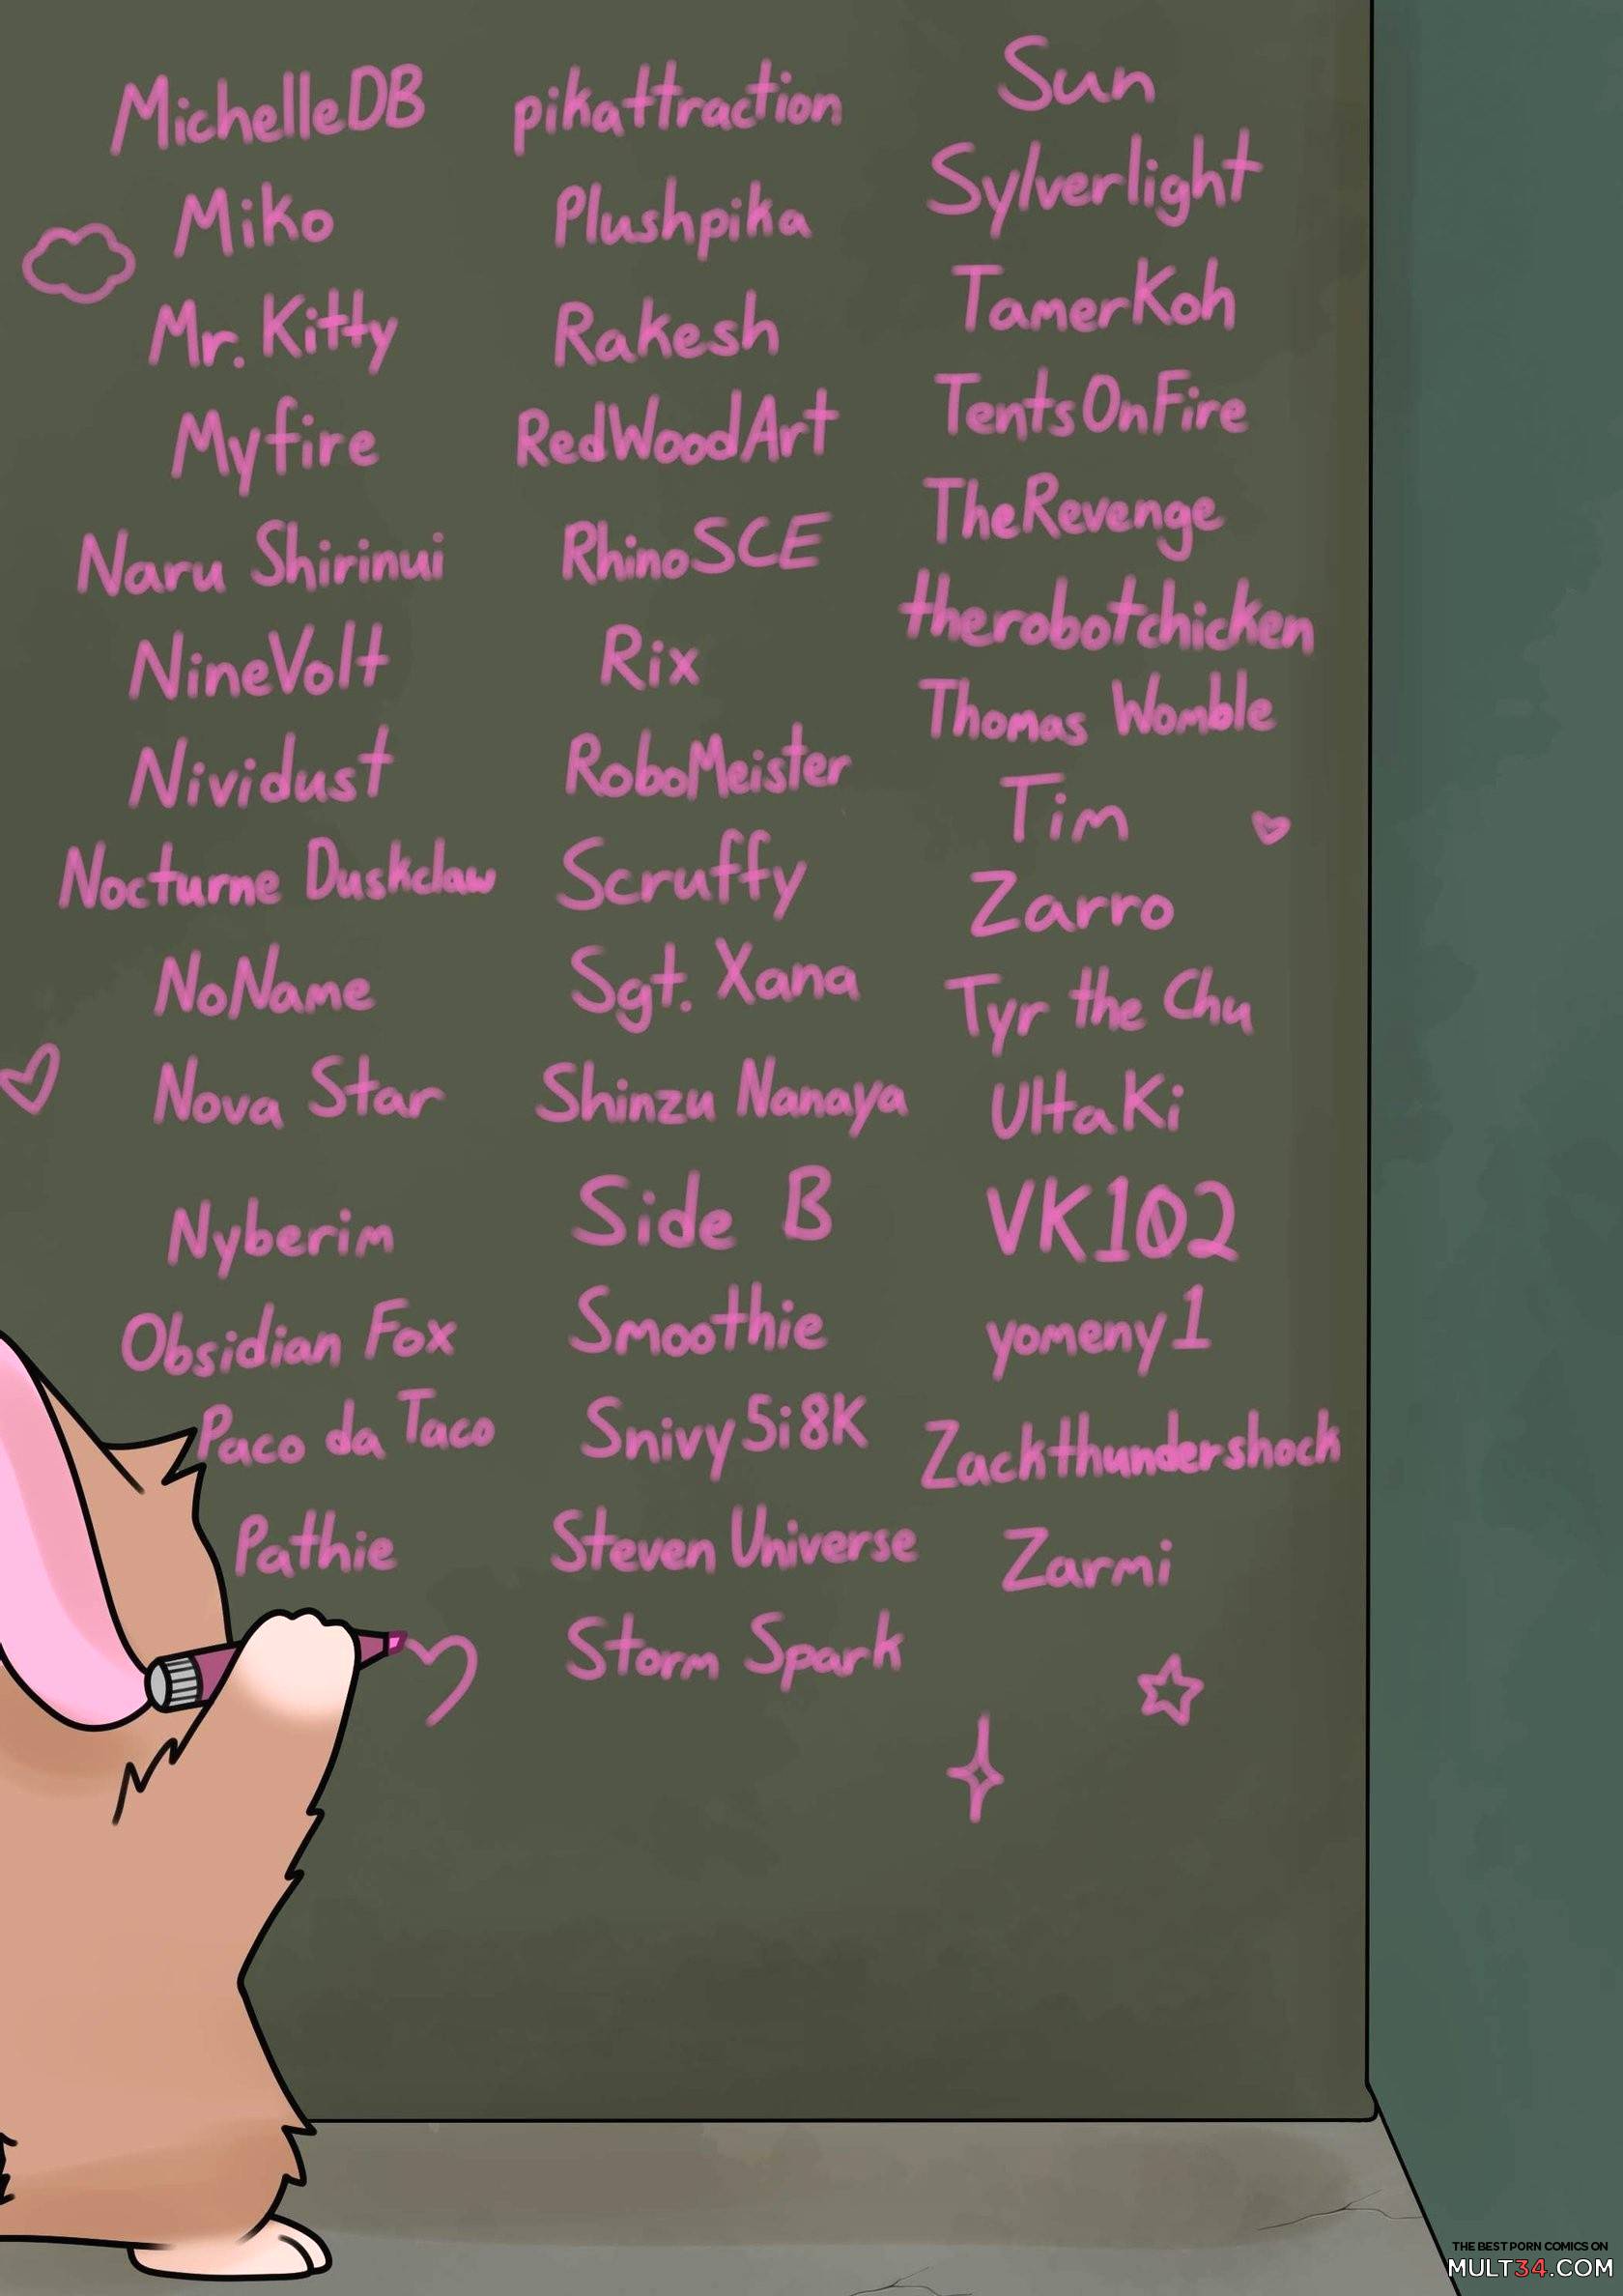 MichelleDB
Miko
Mr. Kitty
Myfire
Naru Shirinui
NineVolt
Nividust
Nocturne Duskclaw
NoName
Nova Star
Nyberim
Obsidian Fox
Paco da Taco
Pathie
pikattraction
Plushpika
Rakesh
RedWoodArt
RhinoSCE
Rix
RoboMeister
Scruffy
Sgt. Xana
Shinzu Nanaya
Side B
Smoothie
Snivy5i8K
Steven Universe
Storm Spark
Sun
Sylverlight
TamerKoh
TentsOnFire
TheRevenge
therobotchicken
Thomas Womble
Tim
Zarro
Tyr the Chu
UltaKi
VK102
yomeny1
Zackthundershock
Zarmi
THE BEST PORN COMICS ON
MULT34.COM